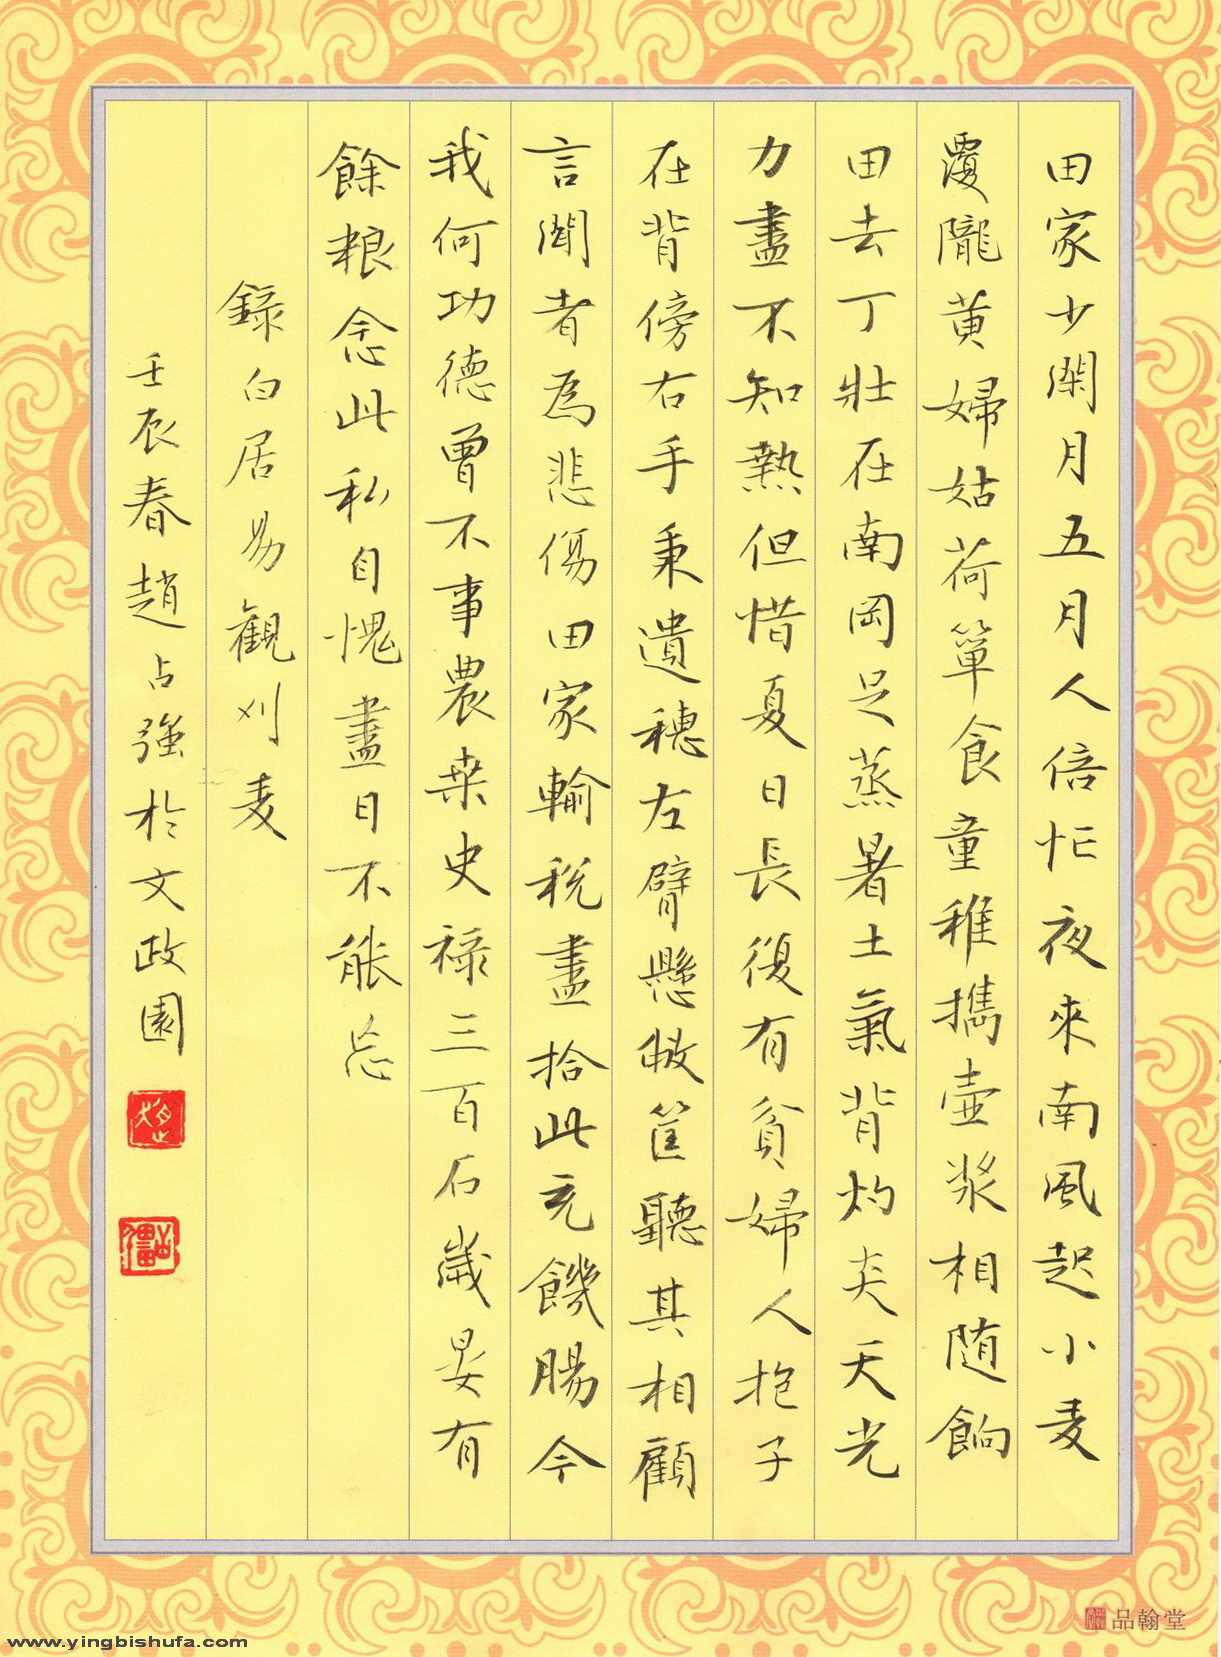 田家少閑月五月人倍忙夜來南風起小麦
覆隴黄婦姑荷箪食童稚攜壺浆相随餉
田去丁壯在南岡足蒸暑土氣背灼炎天光
力盡不知熱但惜夏日長復有貧婦人抱子
在背傍右手秉遺穗左臂懸敝筐聽其相顧
言聞者為悲傷田家輸税盡拾此充饑腸今
我何功德曾不事農桒史禄三百石歲晏有
餘粮念此私自愧盡日不能忘
錄白居易觀刈麦
壬辰春趙占強於文政園
品翰堂
www.yingbishufa.com